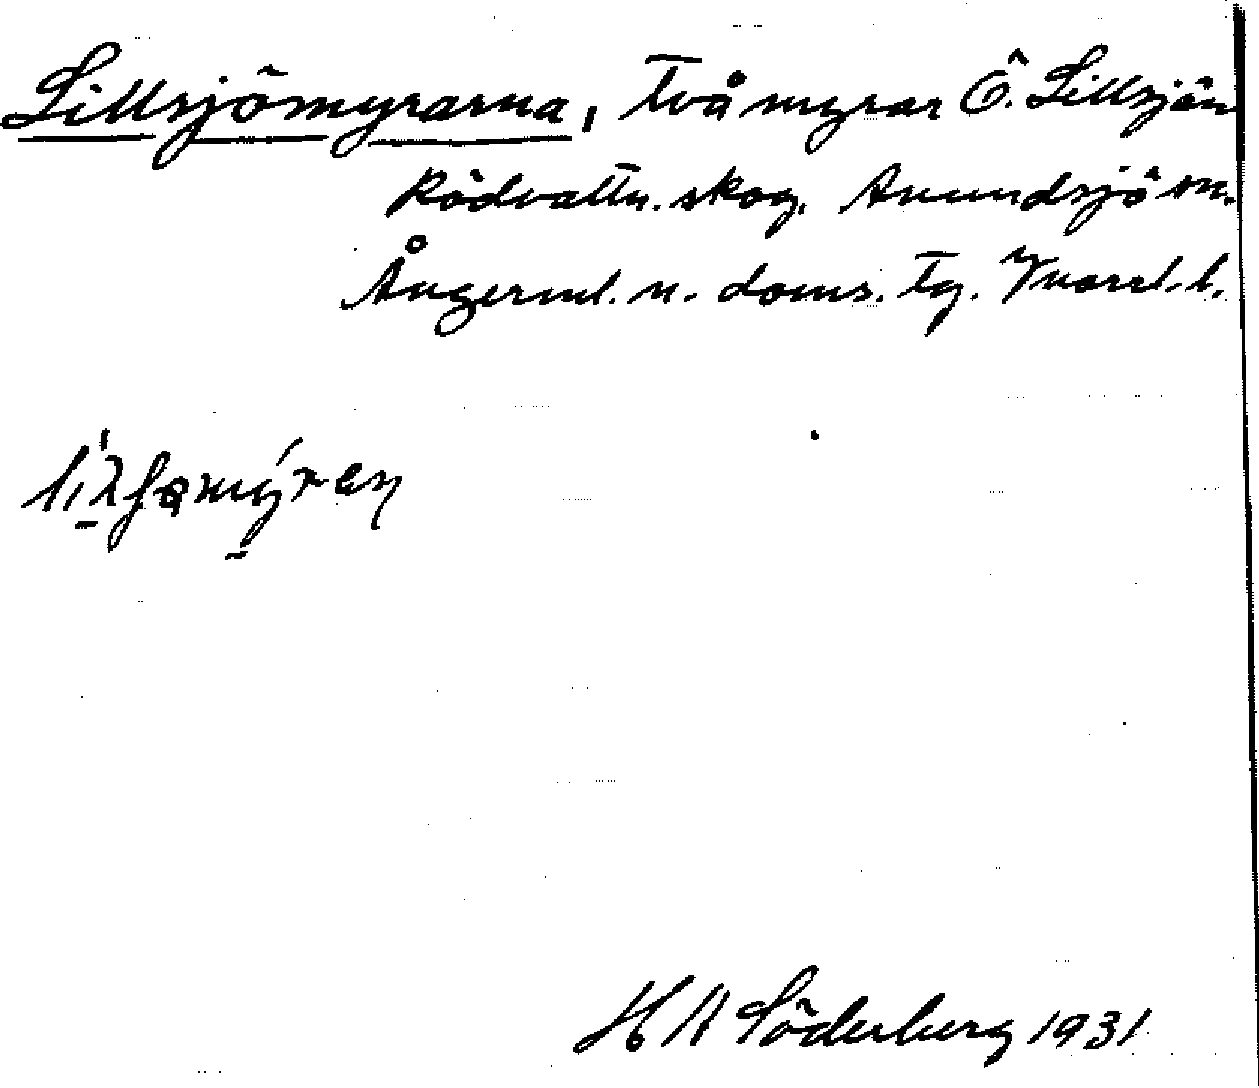 Lillsjömyrarna, Två myrar Ö. Lillsjön
Rödvattn. skog. Anundsjö sn.
Ångerml. n. doms. Tg. Norrl. l.
H A Söderberg 1931